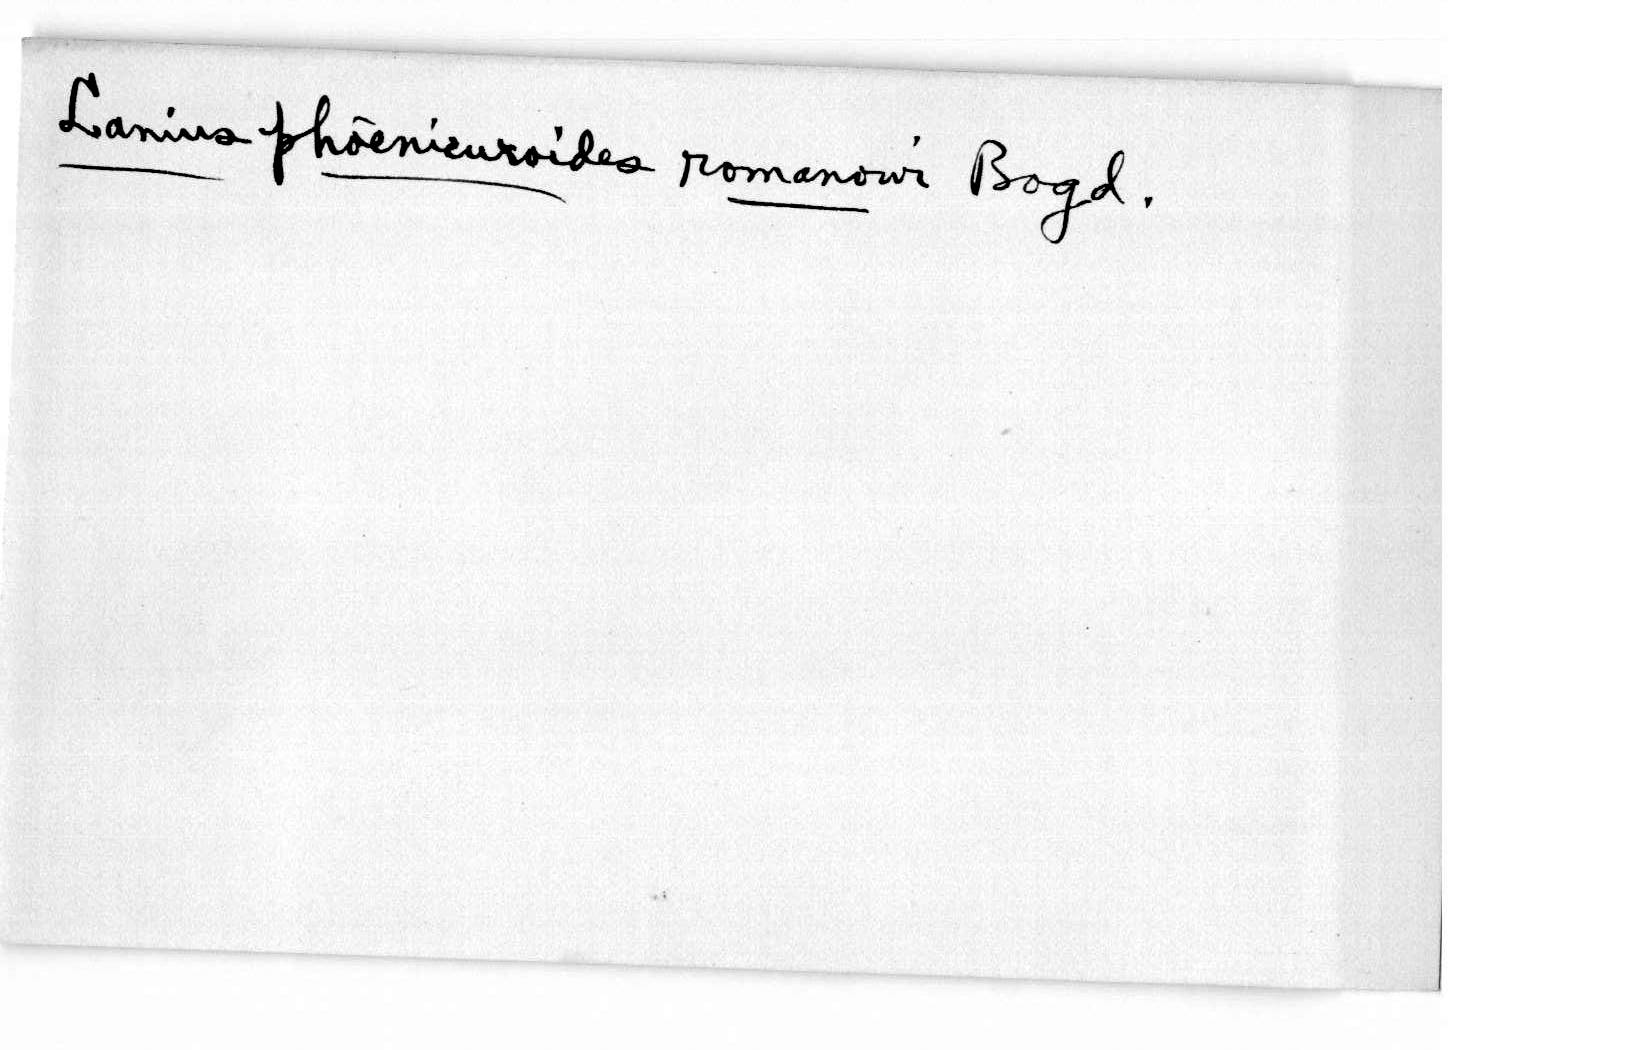 Lanius phōenicuroides romanowi Bogd.